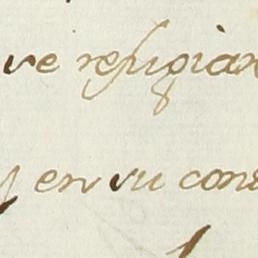 ve refugian
y en su cons